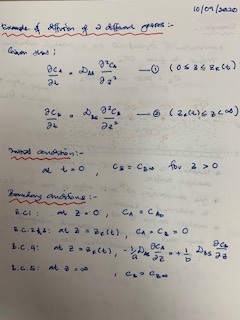 10/09/2020
Example of diffusion of 2 different gases :-
Given that ;
∂C_A/∂t = D_AS ∂²C_A/∂z² — ① ( 0 ≤ z ≤ z_R(t) )
∂C_B/∂t = D_BS ∂²C_B/∂z² — ② ( z_R(t) ≤ z )
Initial condition:-
at t = 0 , C_B = C_B∞ for z > 0
Boundary conditions :-
B.C1: at z = 0 , C_A = C_A0
B.C.2&3: at z = z_R(t) , C_A = C_B = 0
B.C.4: at z = z_R(t) , -1/a D_AS ∂C_A/∂z = +1/b D_BS ∂C_B/∂z
B.C.5: at z = ∞ , C_B = C_B∞